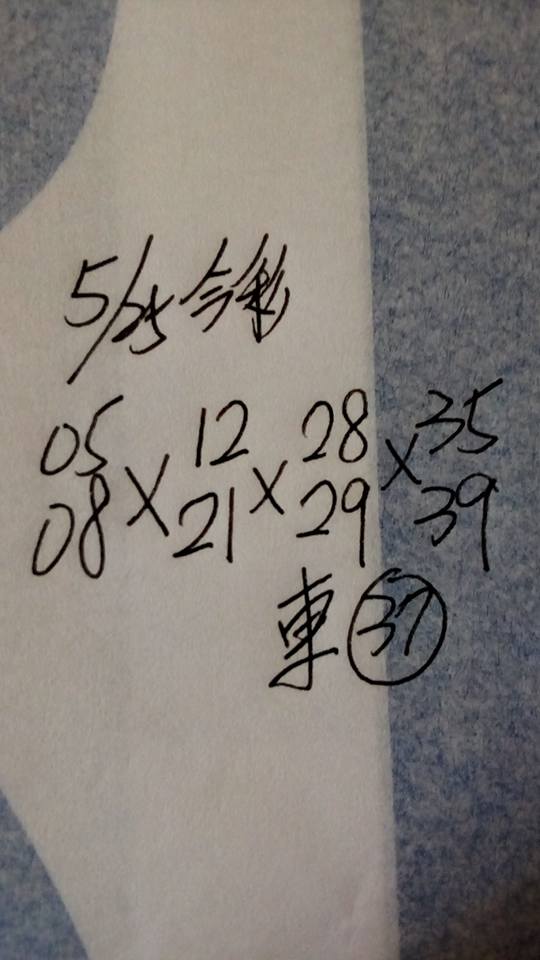 5/25 今彩
05 12 28 35
× × ×
08 21 29 39
車 37